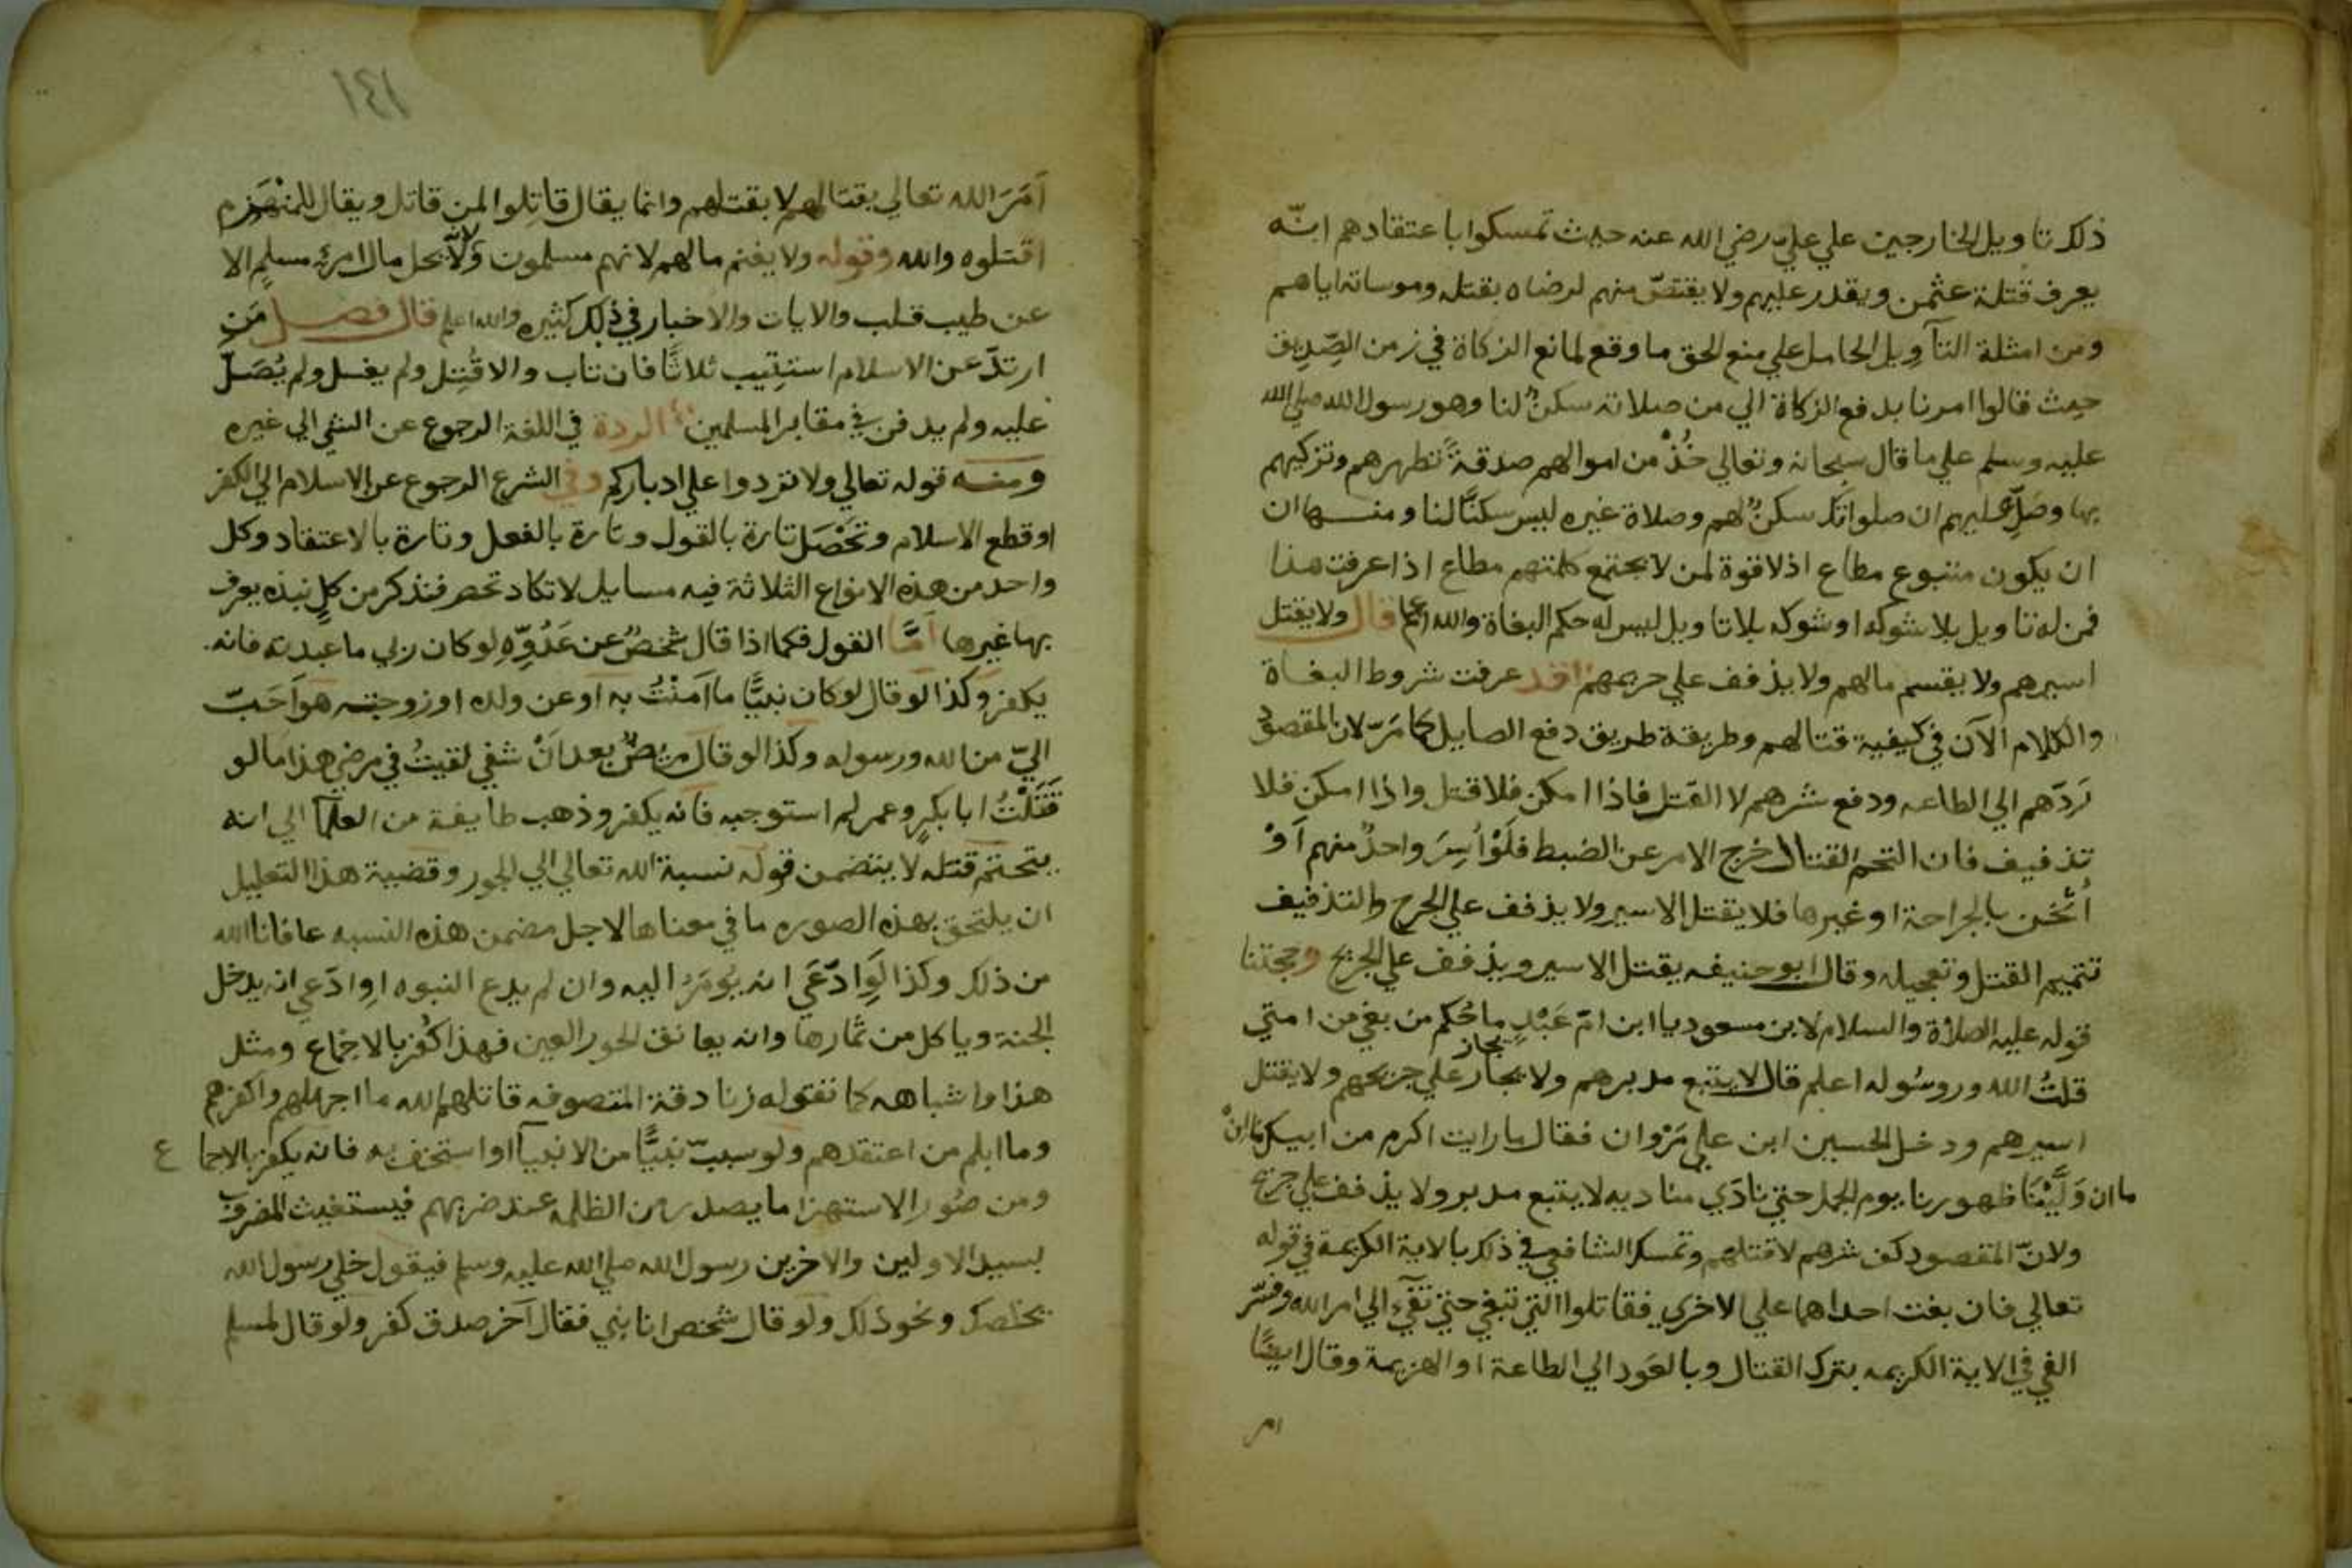 ذلك تاويل الخارجين علي عليّ رضي الله عنه حيث تمسكوا باعتقادهم انّه
يعرف قتلة عثمن ويقدر عليهم ولا يقتصّ منهم لرضاه بقتله وموساته اياهم
ومن امثلة التآويل الحامل علي منع الحق ما وقع لمانع الزكاة في زمن الصِّدِيق
حيث قالوا امرنا بدفع الزكاة الي من صلاته سكنٌ لنا وهو رسول الله صلي الله
عليه وسلم علي ما قال سبحانه وتعالي خُذْ من اموالهم صدقةً تطهرهم وتزكيهم
بها وصَلِّ عليهم ان صلواتك سكنٌ لهم وصلاة غيره ليس سكنًا لنا ومنها ان
ان يكون متبوع مطاع اذ لا قوة لمن لا يجتمع كلمتهم مطاع اذا عرفت هذا
فمن له تاويل بلا شوكه او شوكه بلا تاويل ليس له حكم البغاة والله اعلم قال ولا يقتل
اسيرهم ولا يقسم مالهم ولا يذفف علي جريحهم قد عرفت شروط البغاة
والكلام الآن في كيفية قتالهم وطريقة طريق دفع الصايل كما مَرّ لان المقصود
رَدّهم الي الطاعه ودفع شرهم لا القتل فاذا امكن فلا قتل واذا امكن فلا
تذفيف فان التحم القتال خرج الامر عن الضبط فلَوْ اُسِرَ واحدٌ منهم اَوْ
اُثخن بالجراحة او غيرها فلا يقتل الاسير ولا يذفف علي الجرح والتذفيف
تتميم القتل وتعجيله وقال ابو حنيفه يقتل الاسير ويذفف علي الجريح وحجتنا
قوله عليه الصلاة والسلام لابن مسعود يا ابن امّ عَبْدٍ ما حُكم من بغي من امتي
قلتُ الله وروسُوله اعلم قال لا يتبع مدبرهم ولا يجاز علي جريحهم ولا يقتل
اسيرهم ودخل الحسين ابن علي مَرْوان فقال ما رايت اكرم من ابيك
ما ان وَلَّيْنَا ظهورنا يوم الجمل حتي نادَي مناديه لا يتبع مدبر ولا يذفف علي جريح
ولانّ المقصود كف شرهم لا قتلهم وتمسك الشافعي في ذلك بالاية الكريمة في قوله
تعالي فان بغت احداهما علي الاخري فقاتلوا التي تبغي حتي تفيَٓ الي امر الله وفسّر
الفي في الاية الكريمه بترك القتال وبالعَود الي الطاعة او الهزيمة وقال ايضًا
امر
١٤١
اَمَرَ الله تعالي بقتالهم لا بقتلهم وانما يقال قاتِلوا لمن قاتل ويقال للمنْهَزِم
اقتلوه والله وقوله ولا يغنم مالهم لانهم مسلمون ولا يحل مال امرئٍ مسلمٍ الا
عن طيب قلب والايات والاخبار في ذلك كثيره والله اعلم قال فصل مَن
ارتدّ عن الاسلام استتِيب ثلاثًا فان تاب والا قُتِل ولم يغسل ولم يُصَلّ
عليه ولم يدفن في مقابر المسلمين الردة في اللغة الرجوع عن الشي الي غيره
ومنه قوله تعالي ولا ترتدوا علي ادباركم وفي الشرع الرجوع عن الاسلام الي الكفر
او قطع الاسلام وتَحْصَل تارة بالقول وتارة بالفعل وتارة بالاعتقاد وكل
واحد من هذه الانواع الثلاثة فيه مسايل لا تكاد تحصر فنذكر من كلٍ نبذه يعرف
بها غيرها اَمَّا القول فكما اذا قال شخصٌ عن عَدُوِّهِ لو كان ربي ما عبدته فانه
يكفر وكذا لو قال لو كان نبيًّا ما اَمنْتُ به او عن ولده او زوجته هو اَحَبّ
اليّ من الله ورسوله وكذا لو قال مريضٌ بعد اَنْ شفي لقيتُ في مرضي هذا ما لو
قَتَلْتُ ابا بكرٍ وعمر لم استوجبه فانه يكفر وذهب طايفة من العلما الي انه
يتحتم قتله لا يتضمن قوله نسبة الله تعالي الي الجور وقضية هذا التعليل
ان يلتحق بهذه الصوره ما في معناها لاجل مضمن هذه النسبه عافانا الله
من ذلك وكذا لَوِ ادّعَي انه يُومَرُ اليه وان لم يدع النبوه اوِ ادّعي انه يدخل
الجنة وياكل من ثمارها وانه يعانق الحور العين فهذا كُفر بالاجماع ومثل
هذا واشباهه كما تقوله زنادقة المتصوفه قاتلهم الله ما اجهلهم واكفرهم
وما ابلم من اعتقدهم ولو سبّ نبيًّا من الانبيآ او استخف به فانه يكفر بالاجماع
ومن صُور الاستهزا ما يصدر من الظلمه عند ضربهم فيستغيث المضروب
بسيد الاولين والاخرين رسول الله صلي الله عليه وسلم فيقول خلي رسول الله
يخلصك ونحو ذلك ولو قال شخص انا نبي فقال آخر صدق كفر ولو قال لمسلم